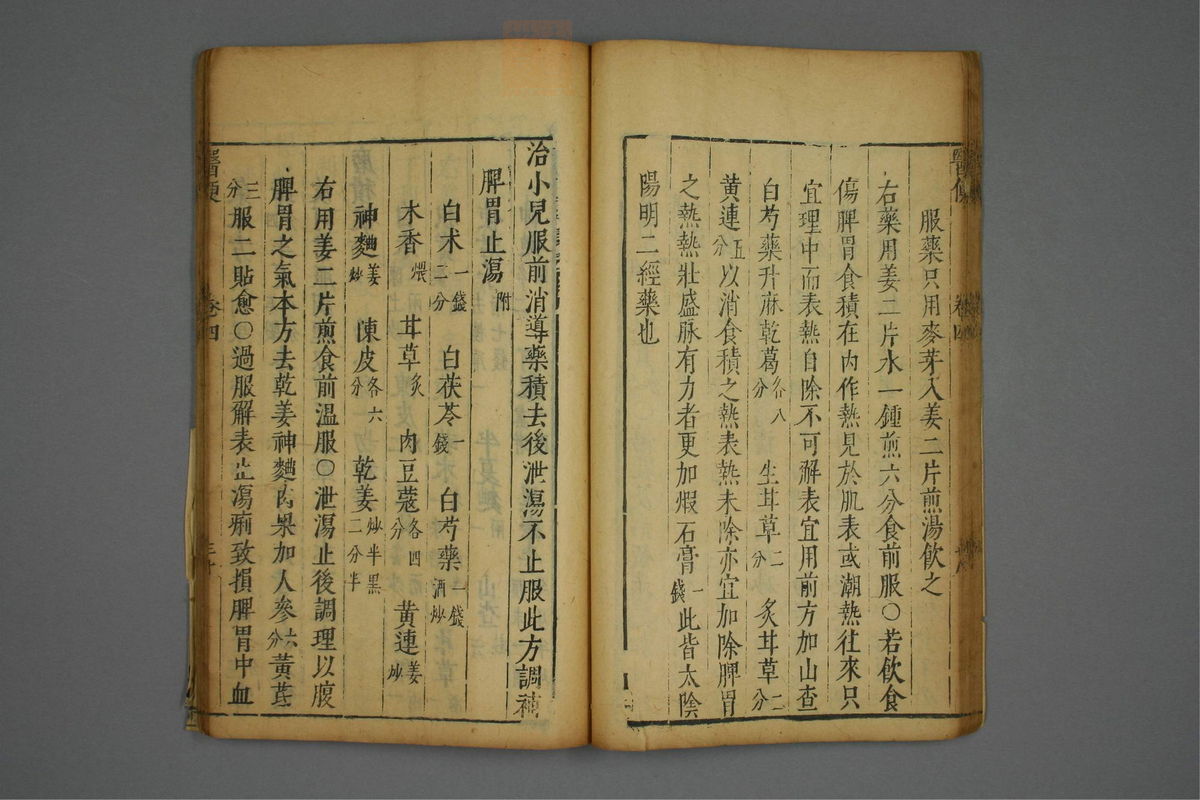 服藥只用麥芽入姜二片煎湯飲之
右藥用姜二片水一鍾煎六分食前服○若飲食
傷脾胃食積在內作熱見於肌表或潮熱往來只
宜理中而表熱自除不可解表宜用前方加山查
白芍藥升麻乾葛各八分 生甘草二分 炙甘草二分
黃連五分以消食積之熱表熱未除亦宜加除脾胃
之熱熱壯盛脉有力者更加煆石膏一錢此皆太陰
陽明二經藥也
治小兒服前消導藥積去後泄瀉不止服此方調補
脾胃止瀉附
白术一錢二分 白茯苓一錢 白芍藥一錢酒炒
木香煨 甘草炙 肉豆蔻各四分 黃連姜炒
神麯姜炒 陳皮各六分 乾姜炒半黑二分半
右用姜二片煎食前溫服○泄瀉止後調理以復
脾胃之氣本方去乾姜神麯肉果加人參六分黃茋
三分服二貼愈○過服解表止瀉痢致損脾胃中血
醫便
卷四
三十